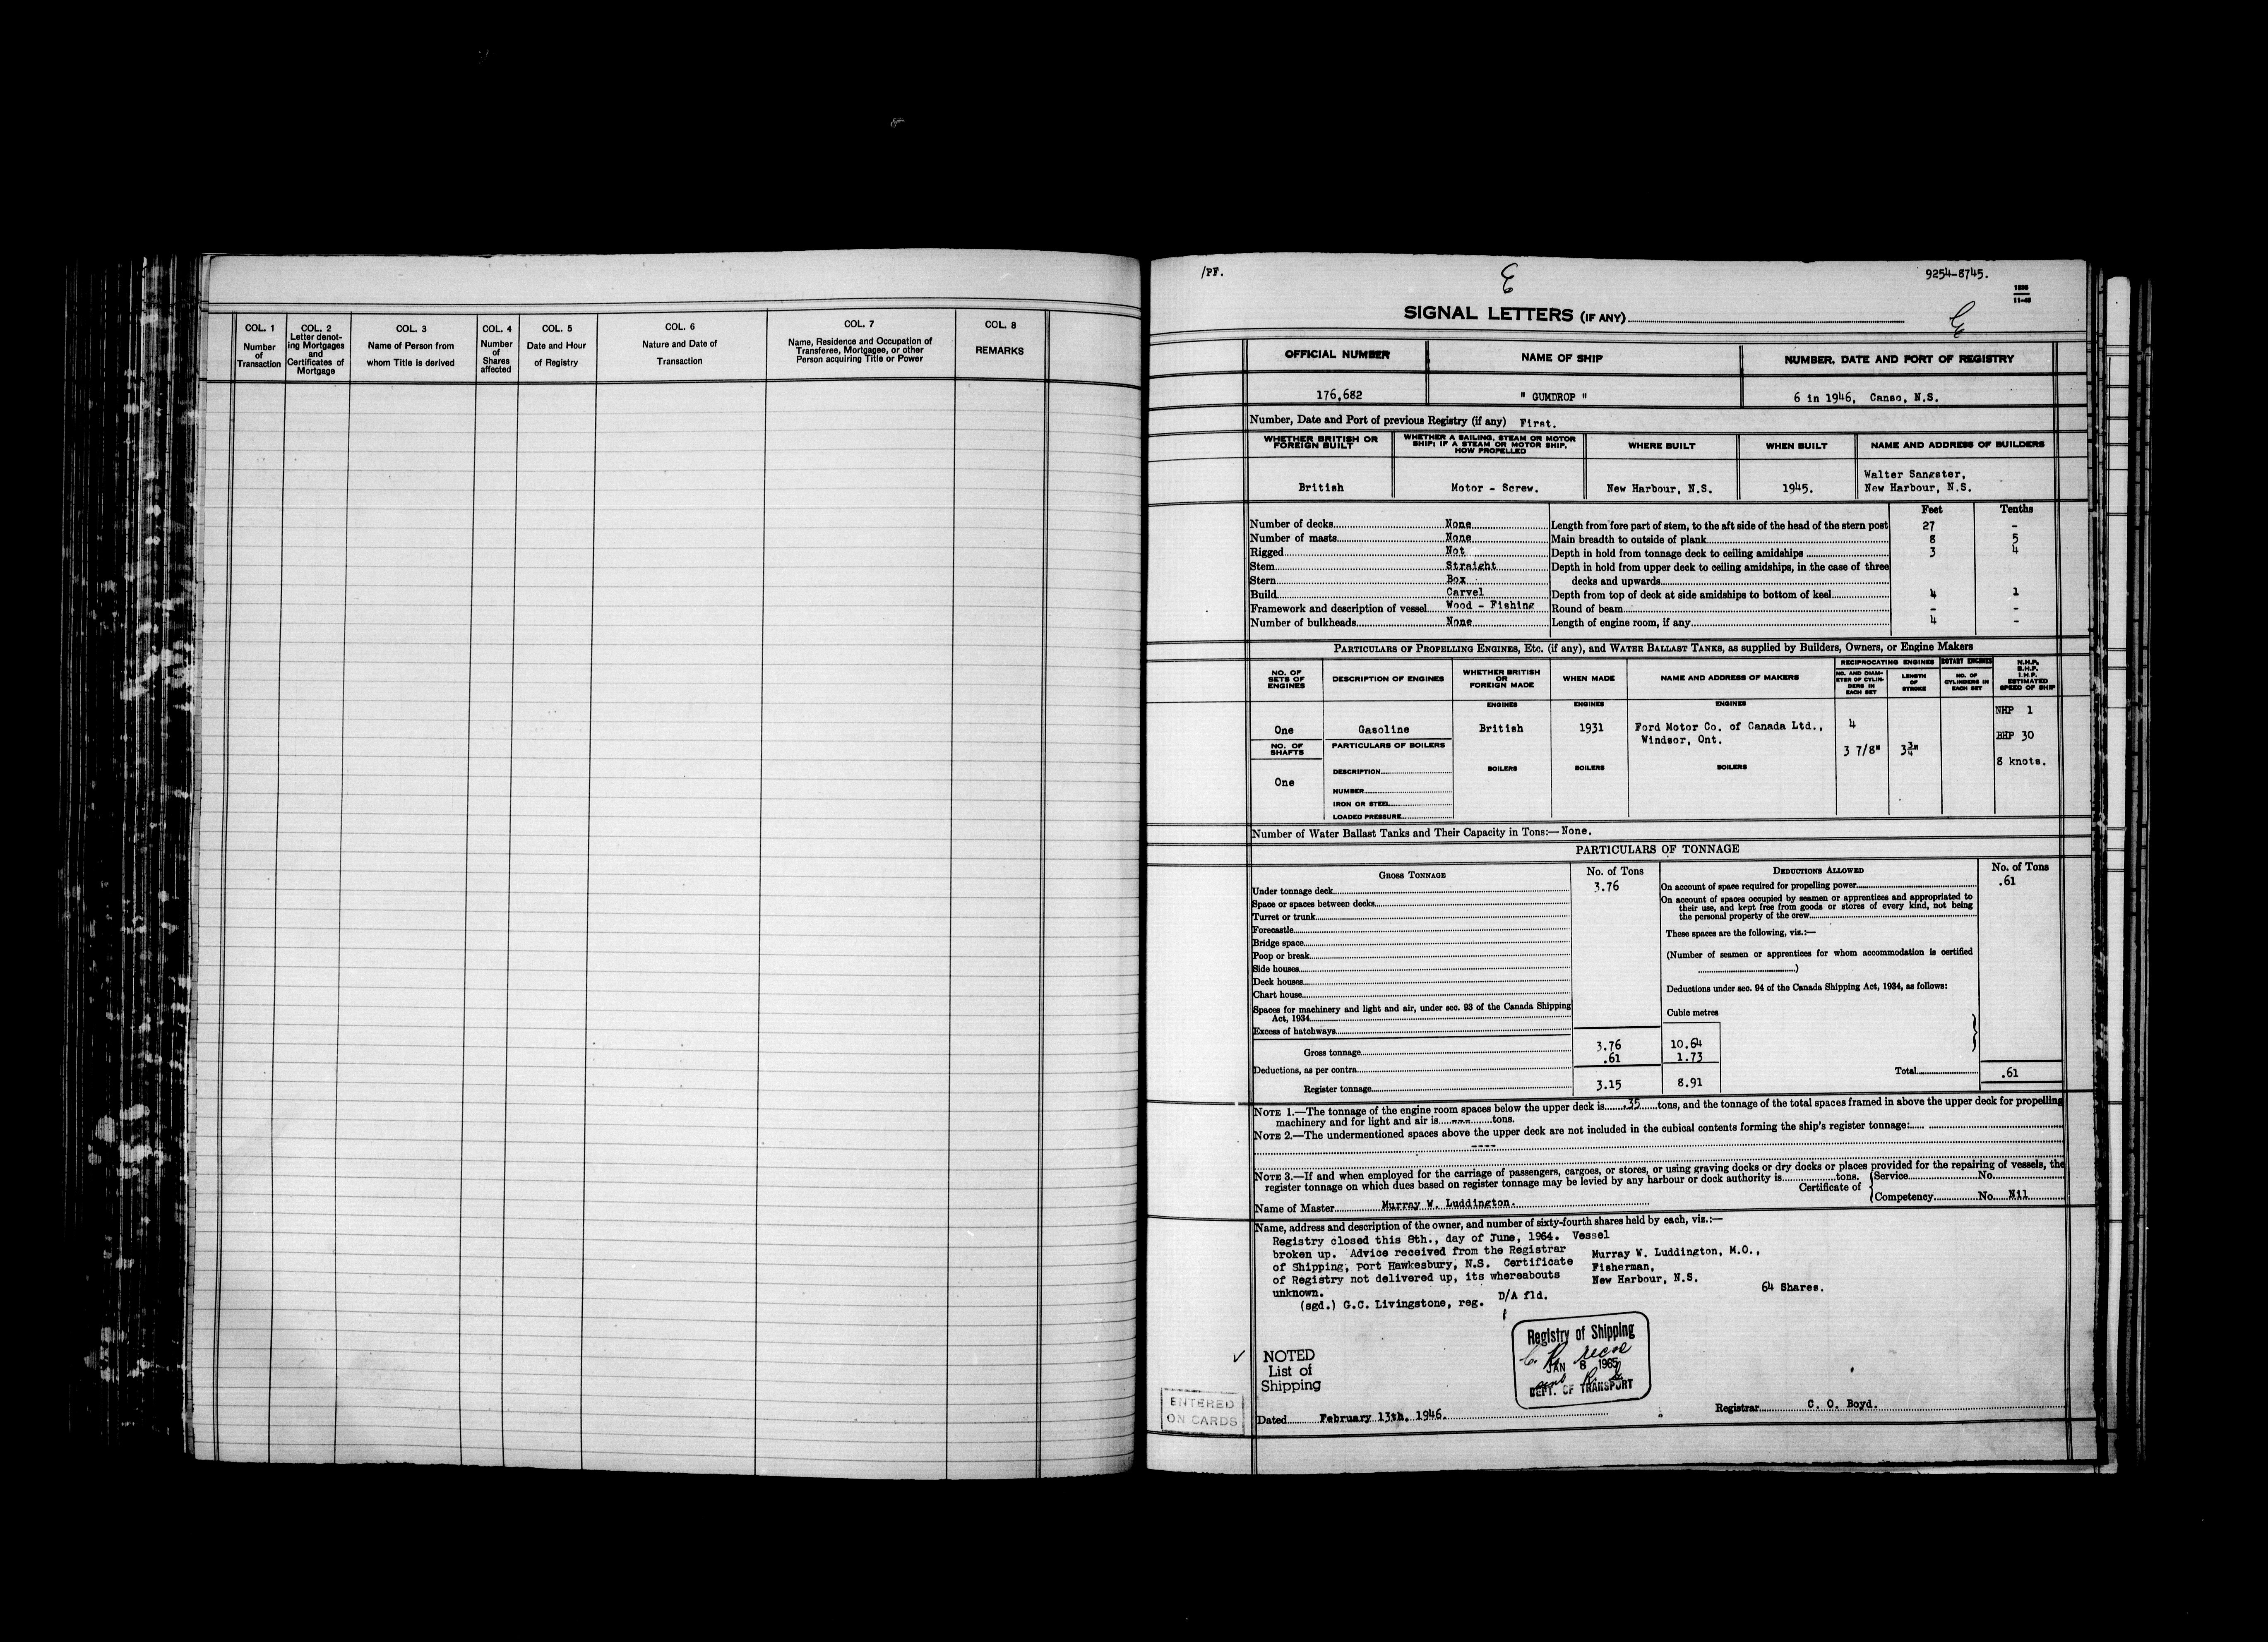 COL. 1
Number
of
Transaction
COL. 2
Letter denot-
ing Mortgages
and
Certificates of
Mortgage
COL. 3
Name of Person from
whom Title is derived
COL. 4
Number
of
Shares
affected
COL. 5
Date and Hour
of Registry
COL. 6
Nature and Date of
Transaction
COL. 7
Name, Residence and Occupation of
Transferee, Mortgagee, or other
Person acquiring Title or Power
COL. 8
REMARKS
/PF.
9254-8745.
SIGNAL LETTERS (IF ANY)
OFFICIAL NUMBER
NAME OF SHIP
NUMBER, DATE AND PORT OF REGISTRY
176,682
" GUMDROP "
6 in 1946, Canso, N.S.
Number, Date and Port of previous Registry (if any) First.
WHETHER BRITISH OR
FOREIGN BUILT
WHETHER A SAILING, STEAM OR MOTOR
SHIP; IF A STEAM OR MOTOR SHIP,
HOW PROPELLED
WHERE BUILT
WHEN BUILT
NAME AND ADDRESS OF BUILDERS
British
Motor - Screw.
New Harbour, N.S.
1945.
Walter Sangster,
New Harbour, N.S.
Feet Tenths
Number of decks None
Number of masts None
Rigged Not
Stem Straight
Stern Box
Build Carvel
Framework and description of vessel Wood - Fishing
Number of bulkheads None
Length from fore part of stem, to the aft side of the head of the stern post 27 -
Main breadth to outside of plank 8 5
Depth in hold from tonnage deck to ceiling amidships 3 4
Depth in hold from upper deck to ceiling amidships, in the case of three
decks and upwards
Depth from top of deck at side amidships to bottom of keel 4 1
Round of beam - -
Length of engine room, if any 4 -
PARTICULARS OF PROPELLING ENGINES, ETC. (if any), and WATER BALLAST TANKS, as supplied by Builders, Owners, or Engine Makers
NO. OF
SETS OF
ENGINES
DESCRIPTION OF ENGINES
WHETHER BRITISH
OR
FOREIGN MADE
WHEN MADE
NAME AND ADDRESS OF MAKERS
RECIPROCATING ENGINES
NO. AND DIAM-
ETER OF CYLIN-
DERS IN
EACH SET
LENGTH
OF
STROKE
ROTARY ENGINES
NO. OF
CYLINDERS IN
EACH SET
N.H.P.
B.H.P.
I.H.P.
ESTIMATED
SPEED OF SHIP
ENGINES ENGINES ENGINES
One
Gasoline
British
1931
Ford Motor Co. of Canada Ltd.,
Windsor, Ont.
4
3 7/8"
3¾"
NHP 1
BHP 30
8 knots.
NO. OF
SHAFTS
One
PARTICULARS OF BOILERS
DESCRIPTION
NUMBER
IRON OR STEEL
LOADED PRESSURE
BOILERS BOILERS BOILERS
Number of Water Ballast Tanks and Their Capacity in Tons:— None.
PARTICULARS OF TONNAGE
GROSS TONNAGE
No. of Tons
Under tonnage deck 3.76
Space or spaces between decks
Turret or trunk
Forecastle
Bridge space
Poop or break
Side houses
Deck houses
Chart house
Spaces for machinery and light and air, under sec. 93 of the Canada Shipping
Act, 1934
Excess of hatchways
Cubic metres
Gross tonnage 3.76 10.64
Deductions, as per contra .61 1.73
Register tonnage 3.15 8.91
DEDUCTIONS ALLOWED
No. of Tons
On account of space required for propelling power .61
On account of spaces occupied by seamen or apprentices and appropriated to
their use, and kept free from goods or stores of every kind, not being
the personal property of the crew
These spaces are the following, viz.:—
(Number of seamen or apprentices for whom accommodation is certified
)
Deductions under sec. 94 of the Canada Shipping Act, 1934, as follows:
Total .61
NOTE 1.—The tonnage of the engine room spaces below the upper deck is .35 tons, and the tonnage of the total spaces framed in above the upper deck for propelling
machinery and for light and air is --- tons.
NOTE 2.—The undermentioned spaces above the upper deck are not included in the cubical contents forming the ship's register tonnage:
----
NOTE 3.—If and when employed for the carriage of passengers, cargoes, or stores, or using graving docks or dry docks or places provided for the repairing of vessels, the
register tonnage on which dues based on register tonnage may be levied by any harbour or dock authority is tons.
Certificate of
Service No.
Competency No. Nil
Name of Master Murray W. Luddington.
Name, address and description of the owner, and number of sixty-fourth shares held by each, viz.:—
Registry closed this 8th., day of June, 1964. Vessel
broken up. Advice received from the Registrar
of Shipping, Port Hawkesbury, N.S. Certificate
of Registry not delivered up, its whereabouts
unknown.
(sgd.) G.C. Livingstone, reg.
D/A fld.
Murray W. Luddington, M.O.,
Fisherman,
New Harbour, N.S.
64 Shares.
NOTED
List of
Shipping
Registry of Shipping
JAN 8 1965
DEPT. OF TRANSPORT
ENTERED
ON CARDS
Dated February 13th, 1946.
Registrar C. O. Boyd.